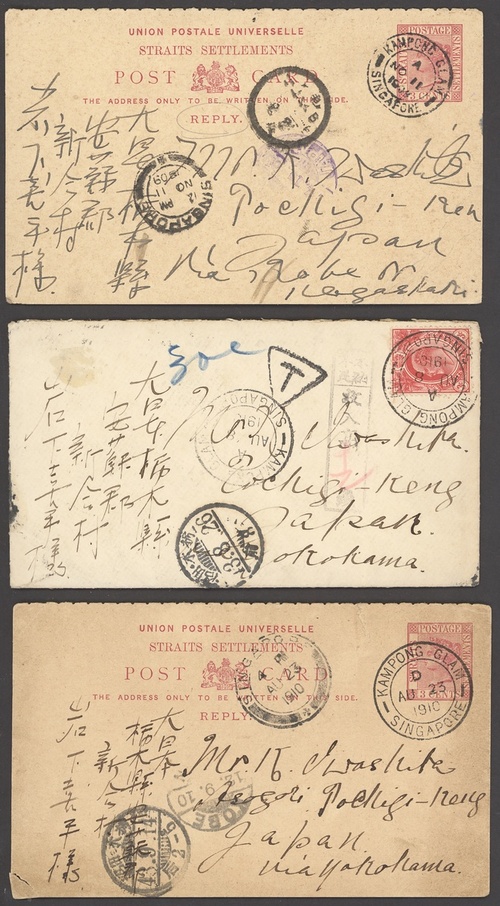 UNION POSTALE UNIVERSELLE
STRAITS SETTLEMENTS
POST CARD
THE ADDRESS ONLY TO BE WRITTEN ON THIS SIDE.
REPLY.
POSTAGE
3 CENTS
KAMPONG GLAM
A
NO 11
SINGAPORE
SINGAPORE
12 PM
NO 11
1909
Iwashita
Tochigi-Ken
Japan
Via Kobe or
Nagasaki
大日本栃木縣
安蘇郡
新合村
岩下嘉平様
30c
T
KAMPONG GLAM
A
AU
1910
SINGAPORE
KAMPONG GLAM
SINGAPORE
Iwashita
Tochigi-Keng
Japan
Yokohama.
大日本栃木縣
安蘇郡
新合村
岩下嘉平様
UNION POSTALE UNIVERSELLE
STRAITS SETTLEMENTS
POST CARD
THE ADDRESS ONLY TO BE WRITTEN ON THIS SIDE.
REPLY.
POSTAGE
3 CENTS
SINGAPORE
AU 23
1910
KAMPONG GLAM
D
AU 23
1910
SINGAPORE
Mr K. Iwashita
Tochigi-Keng
Japan
via Yokohama.
KOBE
12.9.10
大日本
栃木縣
新合村
岩下嘉平様